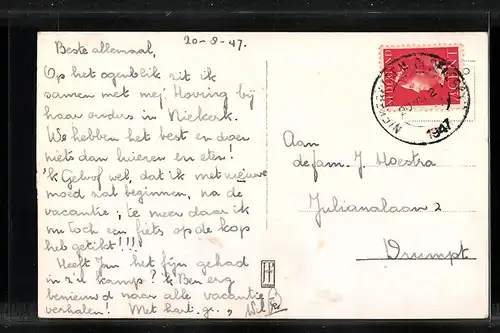 20-8-47.
Beste allemaal,
Op het ogenblik zit ik
samen met mej Hovring bij
haar ouders in Niekerk.
We hebben het best en doen
niets dan luieren en eten!
'k Geloof wel, dat ik met nieuwe
moed zal beginnen, na de
vacantie; te meer daar ik
nu toch een fiets op de kop
heb getikt!!!
Heeft Jan het fijn gehad
in z'n kamp? 'k Ben erg
benieuwd naar alle vacantie
verhalen! Met hart. gr.,
NEDERLAND
CENT
1947
Aan
de fam. J. Hoestra
Julianalaan 2
Drumpt